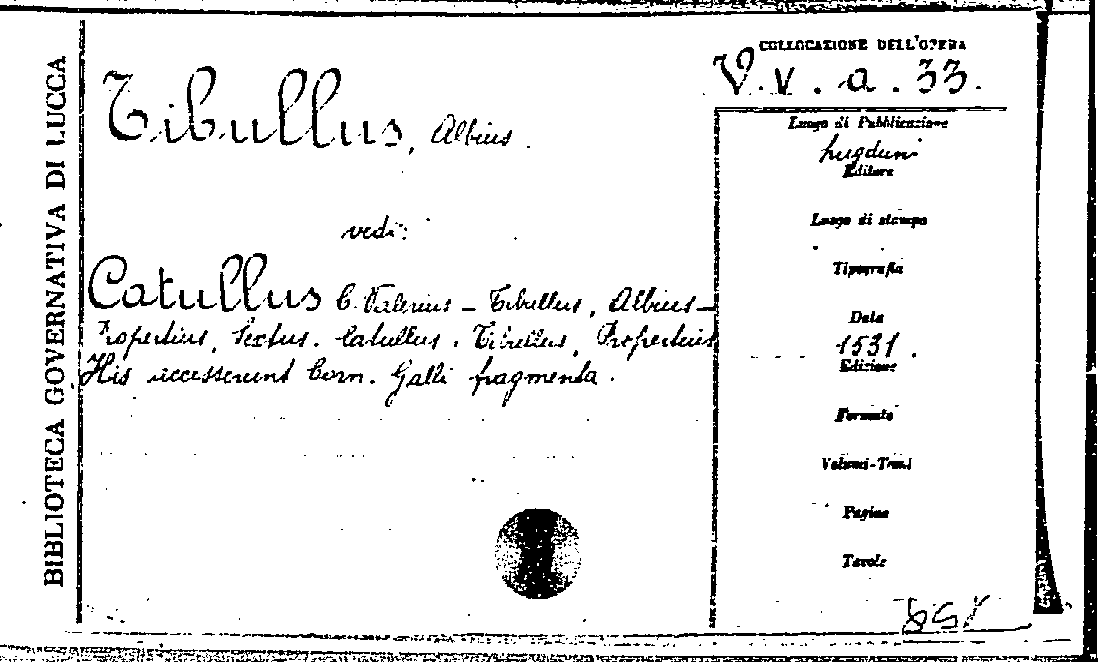 BIBLIOTECA GOVERNATIVA DI LUCCA
COLLOCAZIONE DELL'OPERA
V. v. a. 33.
Tibullus, Albius.
vedi:
Catullus C. Valerius – Tibullus, Albius –
Propertius, Sextus. Catullus. Tibullus, Propertius
His accesserunt Corn. Galli fragmenta.
Luogo di Pubblicazione
Lugduni
Editore
Luogo di stampa
Tipografia
Data
1531.
Edizione
Formato
Volumi-Tomi
Pagine
Tavole